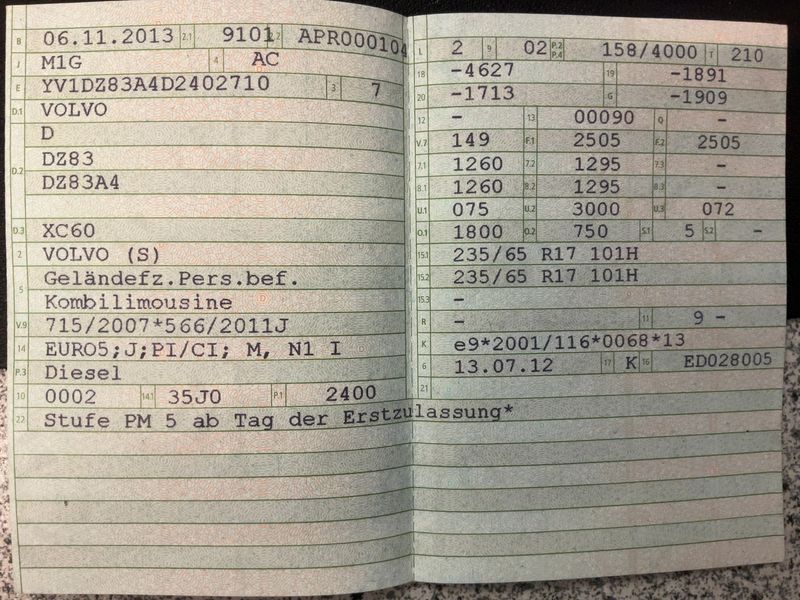 B 06.11.2013 2.1 9101 2.2 APR000104
J M1G 4 AC
E YV1DZ83A4D2402710 3 7
D.1 VOLVO
D
D.2 DZ83
DZ83A4
D.3 XC60
2 VOLVO (S)
5 Geländefz.Pers.bef.
Kombilimousine
V.9 715/2007*566/2011J
14 EURO5;J;PI/CI; M, N1 I
P.3 Diesel
10 0002 14.1 35J0 P.1 2400
22 Stufe PM 5 ab Tag der Erstzulassung*
L 2 9 02 P.2 P.4 158/4000 T 210
18 -4627 19 -1891
20 -1713 G -1909
12 - 13 00090 Q -
V.7 149 F.1 2505 F.2 2505
7.1 1260 7.2 1295 7.3 -
8.1 1260 8.2 1295 8.3 -
U.1 075 U.2 3000 U.3 072
O.1 1800 O.2 750 S.1 5 S.2 -
15.1 235/65 R17 101H
15.2 235/65 R17 101H
15.3 -
R - 11 9 -
K e9*2001/116*0068*13
6 13.07.12 17 K 16 ED028005
21